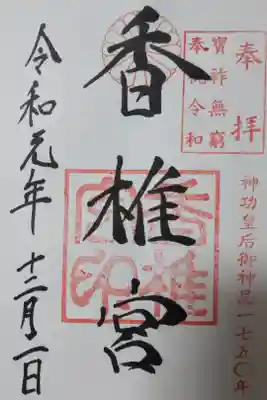 奉拝
寶祚無窮
奉祝令和
神功皇后御神忌一七五〇年
香椎宮
令和元年十二月一日